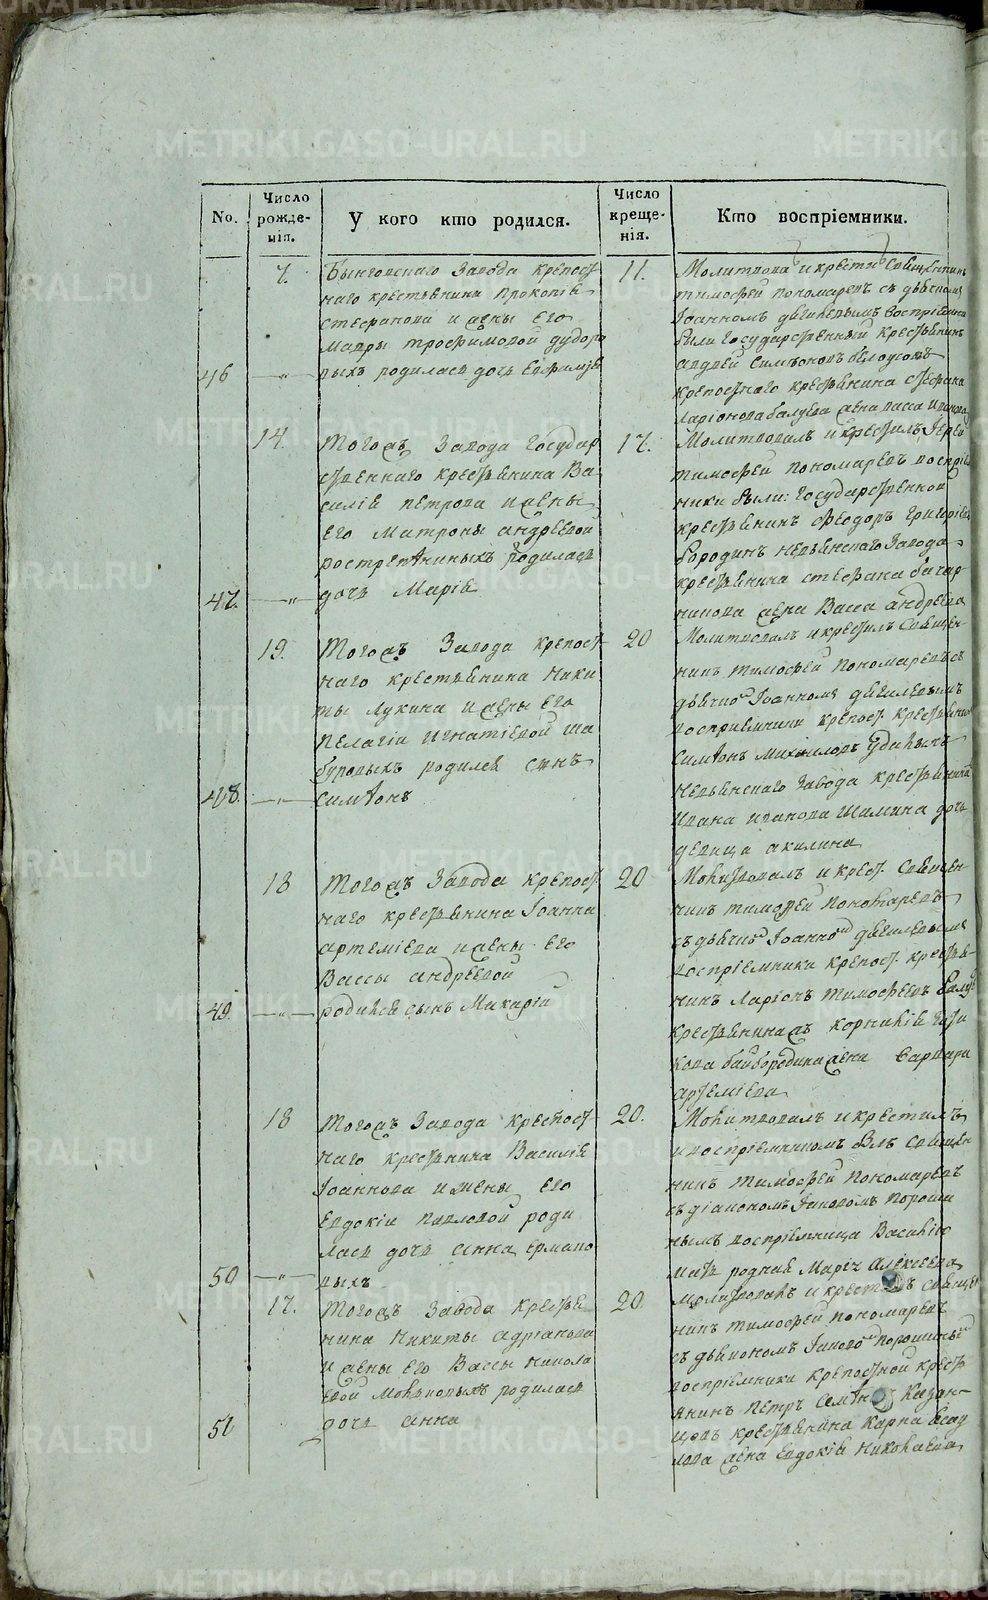 No.
Число рожде- нія.
У кого кто родился.
Число креще- нія.
Кто воспріемники.
7.
Быньговскаго завода крепост
наго крестьянина Прокопія
Стефанова и жены его
Мавры Трофимовой Дудоро
46 —„—
выхъ родилась дочь Евфимія
11.
Молитвова и крести священникъ
Тимофей Пономаревъ съ дьячкомъ
Іоанномъ воспріемники
были государственный крестьянинъ
Андрей Симеоновъ Белоусовъ
крепостнаго крестьянина Стефана
Ларіонова Балуева жена Васса Иванова
14.
Тогожъ завода государ
ственнаго крестьянина Ва
силія Петрова и жены
его Матроны Андреевой
родилась
47. —„—
дочь Марія
17.
Молитвовалъ и крестилъ Іерей
Тимофей Пономаревъ воспріем
ники были: государственной
крестьянинъ Феодоръ Григорьевъ
Бородинъ Невьянскаго завода
крестьянина Стефана
жена Васса Андреева
19.
Тогожъ завода крепост
наго крестьянина Ники
ты Лукина и жены его
Пелагіи Игнатіевой Ша
буровыхъ родился сынъ
48. —„—
Симеонъ
20
Молитвовалъ и крестилъ священ
никъ Тимофей Пономаревъ съ
дьячко Іоанномъ
воспріемники крепост. крестьянинъ
Симеонъ Михайловъ
Невьянскаго завода крестьянина
Ивана Иванова Шамина дочь
девица Акилина
18
Тогожъ завода крепост
наго крестьянина Іоанна
Артеміева и жены его
Вассы Андреевой
49. —„—
родился сынъ Макарій
20
Молитвовалъ и крест. священ
никъ Тимофей Пономаревъ
съ дьячко Іоанно
воспріемники крепост. крестья
нинъ Ларіонъ Тимофеевъ Балуе
крестьянинажъ
жена Варвара
Артеміева
18
Тогожъ завода крепост
наго крестьянина Василія
Іоаннова и жены его
Евдокіи Павловой роди
лась дочь Анна Ермако
50 —„—
выхъ
20.
Молитвовалъ и крестилъ
и воспріемникомъ былъ священ
никъ Тимофей Пономаревъ
съ діакономъ Іаковомъ Пороши
нымъ воспріемница Василія
мать родная Марія Алексеева
17.
Тогожъ завода крестья
нина Никиты Адріанова
и жены его Вассы Никола
евой родилась
51
дочь Анна
20.
Молитвовалъ и крестилъ священ
никъ Тимофей Пономаревъ
съ дьякономъ Іаково Порошины
воспріемники крепостной кресть
янинъ Петръ Казан-
цовъ крестьянина Карпа
жена Евдокія Николаева
METRIKI.GASO-URAL.RU